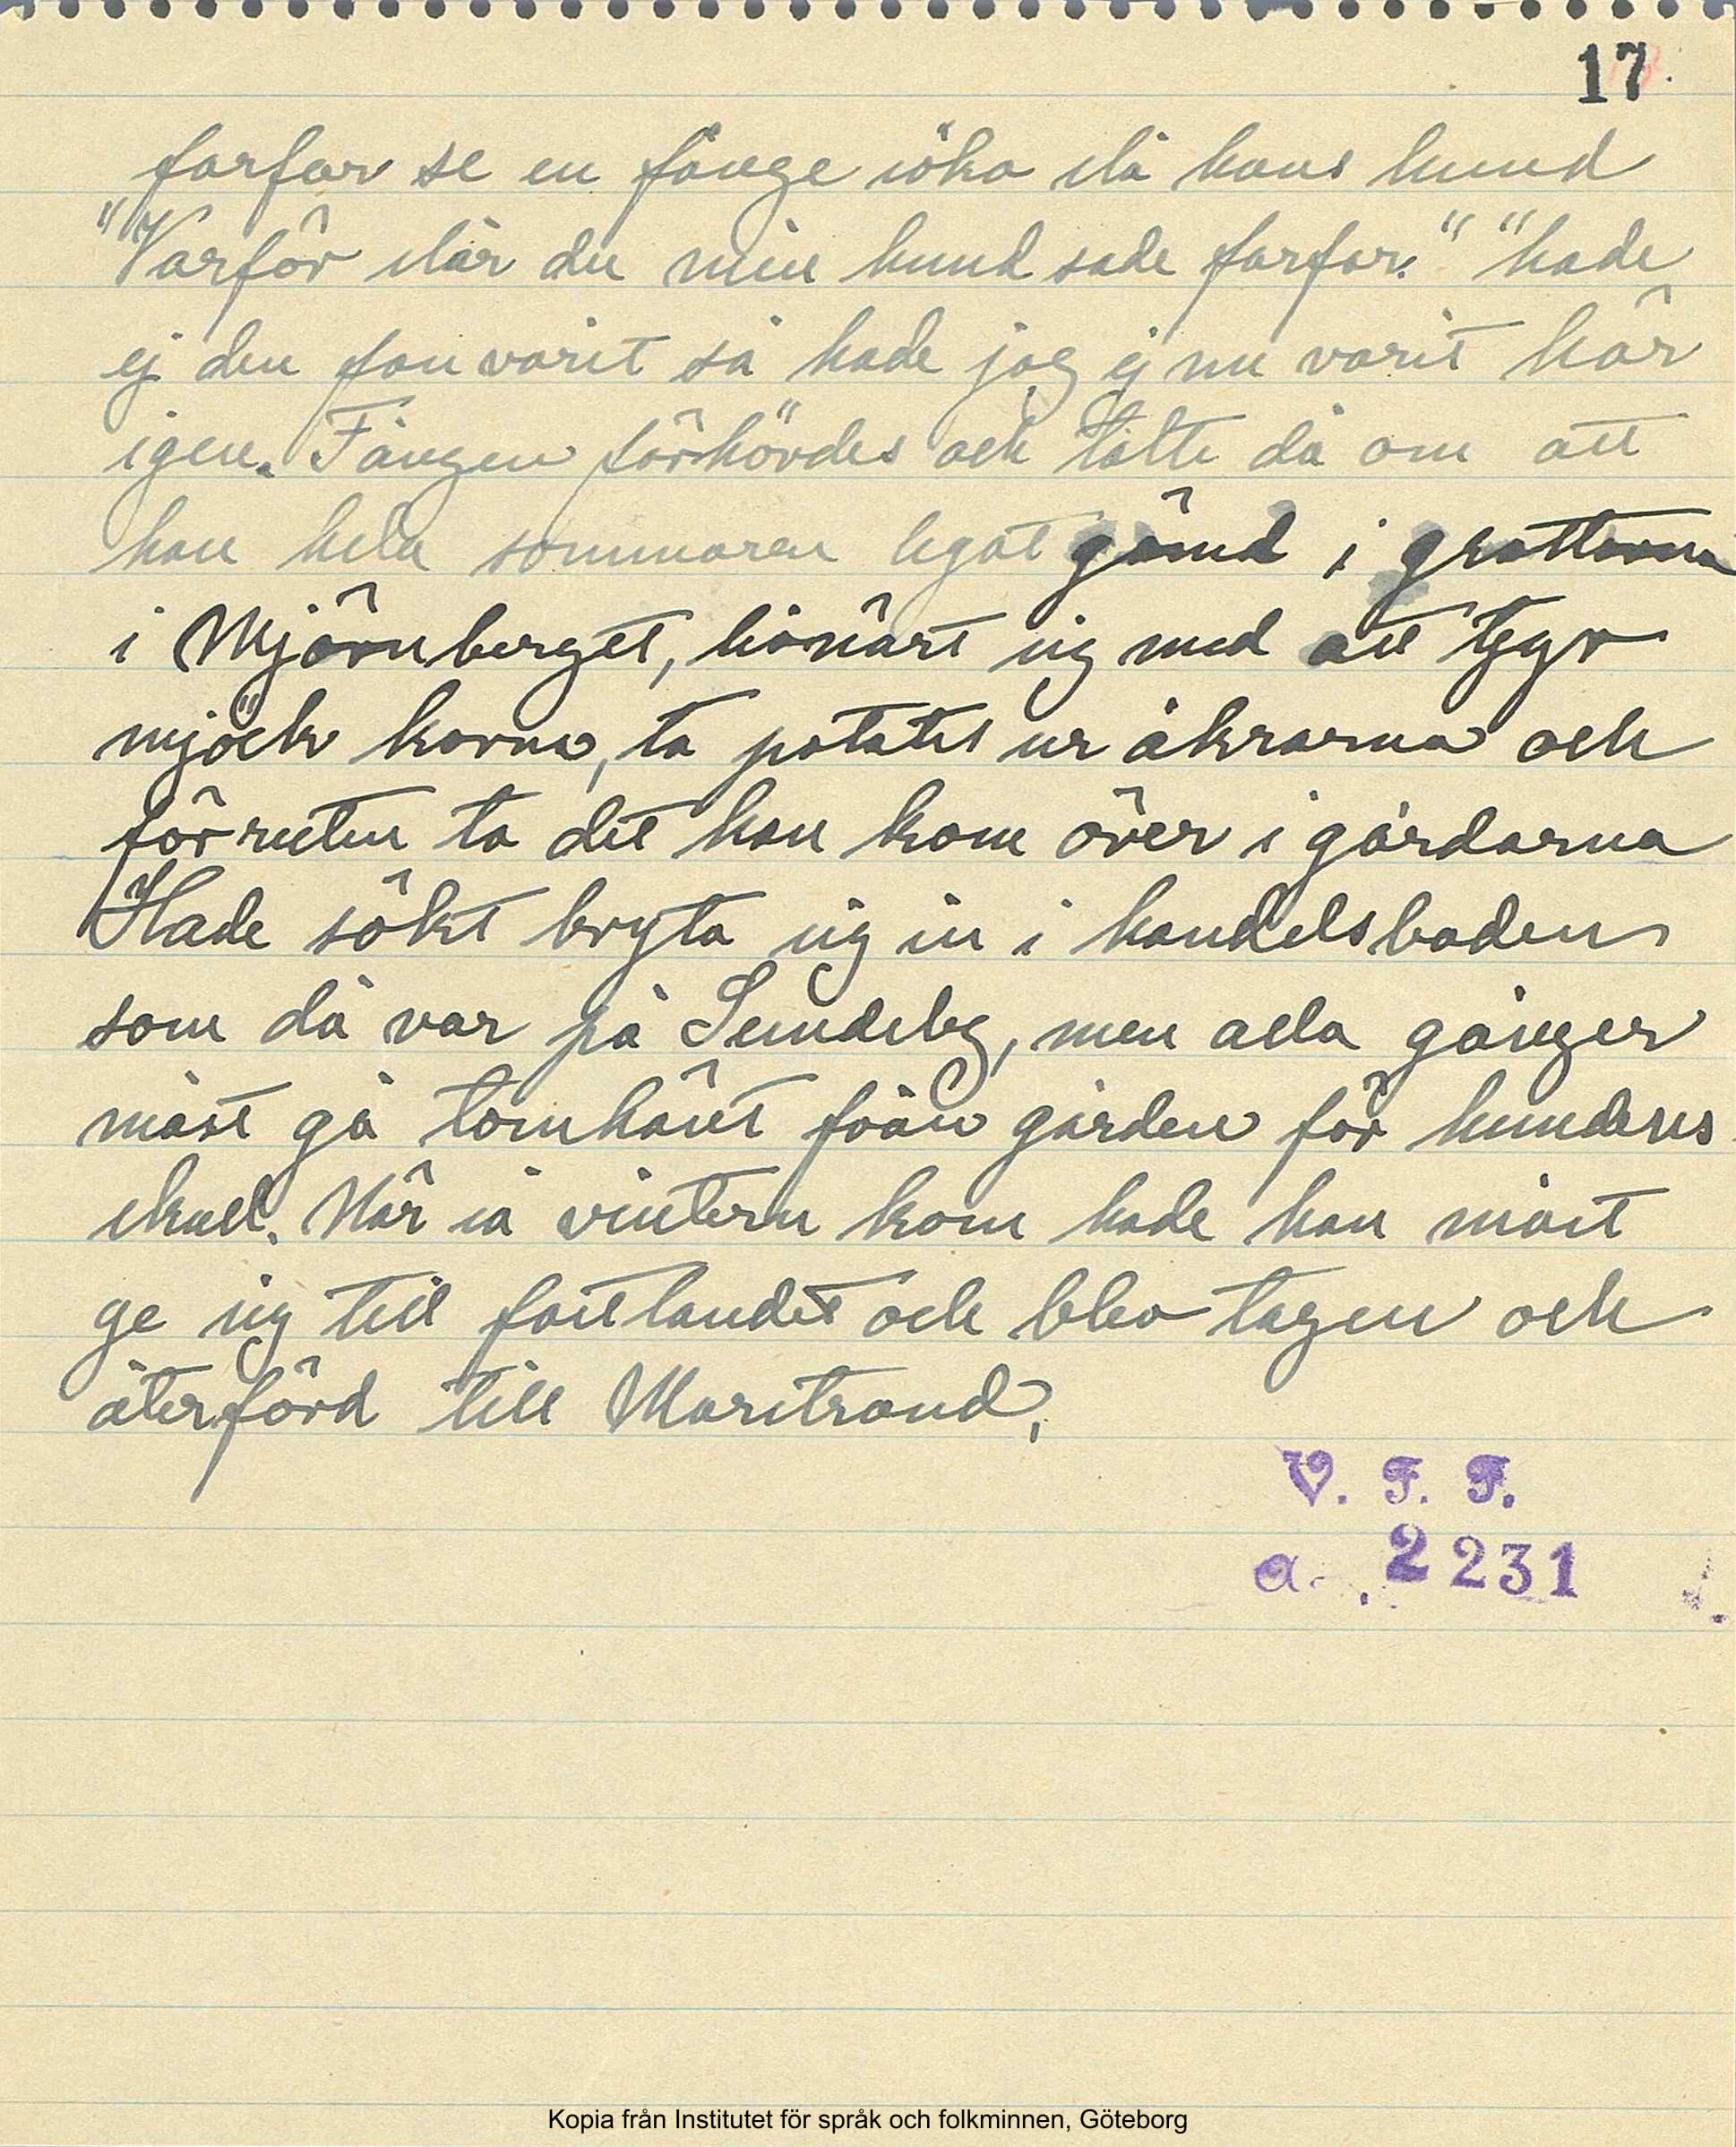 17.
farfar se en fånge söka slå hans hund
"Varför slår du min hund sade farfar." "hade
ej den fan varit så hade jag ej nu varit här
igen. Fången förhördes och talte då om att
han hela sommaren legat gömd i grottorna
i Mjörnberget, livnärt sig med att
mjölk korna, ta potatis ur åkrarna och
förruten ta det han kom över i gårdarna
Hade sökt bryta sig in i handelsboden
som då var på Sundsby, men alla gånger
måst gå tomhänt från gården för hundens
skall. När så vintern kom hade han måst
ge sig till fastlandet och blev tagen och
återförd till Marstrand.
V. F. F.
a. 2231
Kopia från Institutet för språk och folkminnen, Göteborg